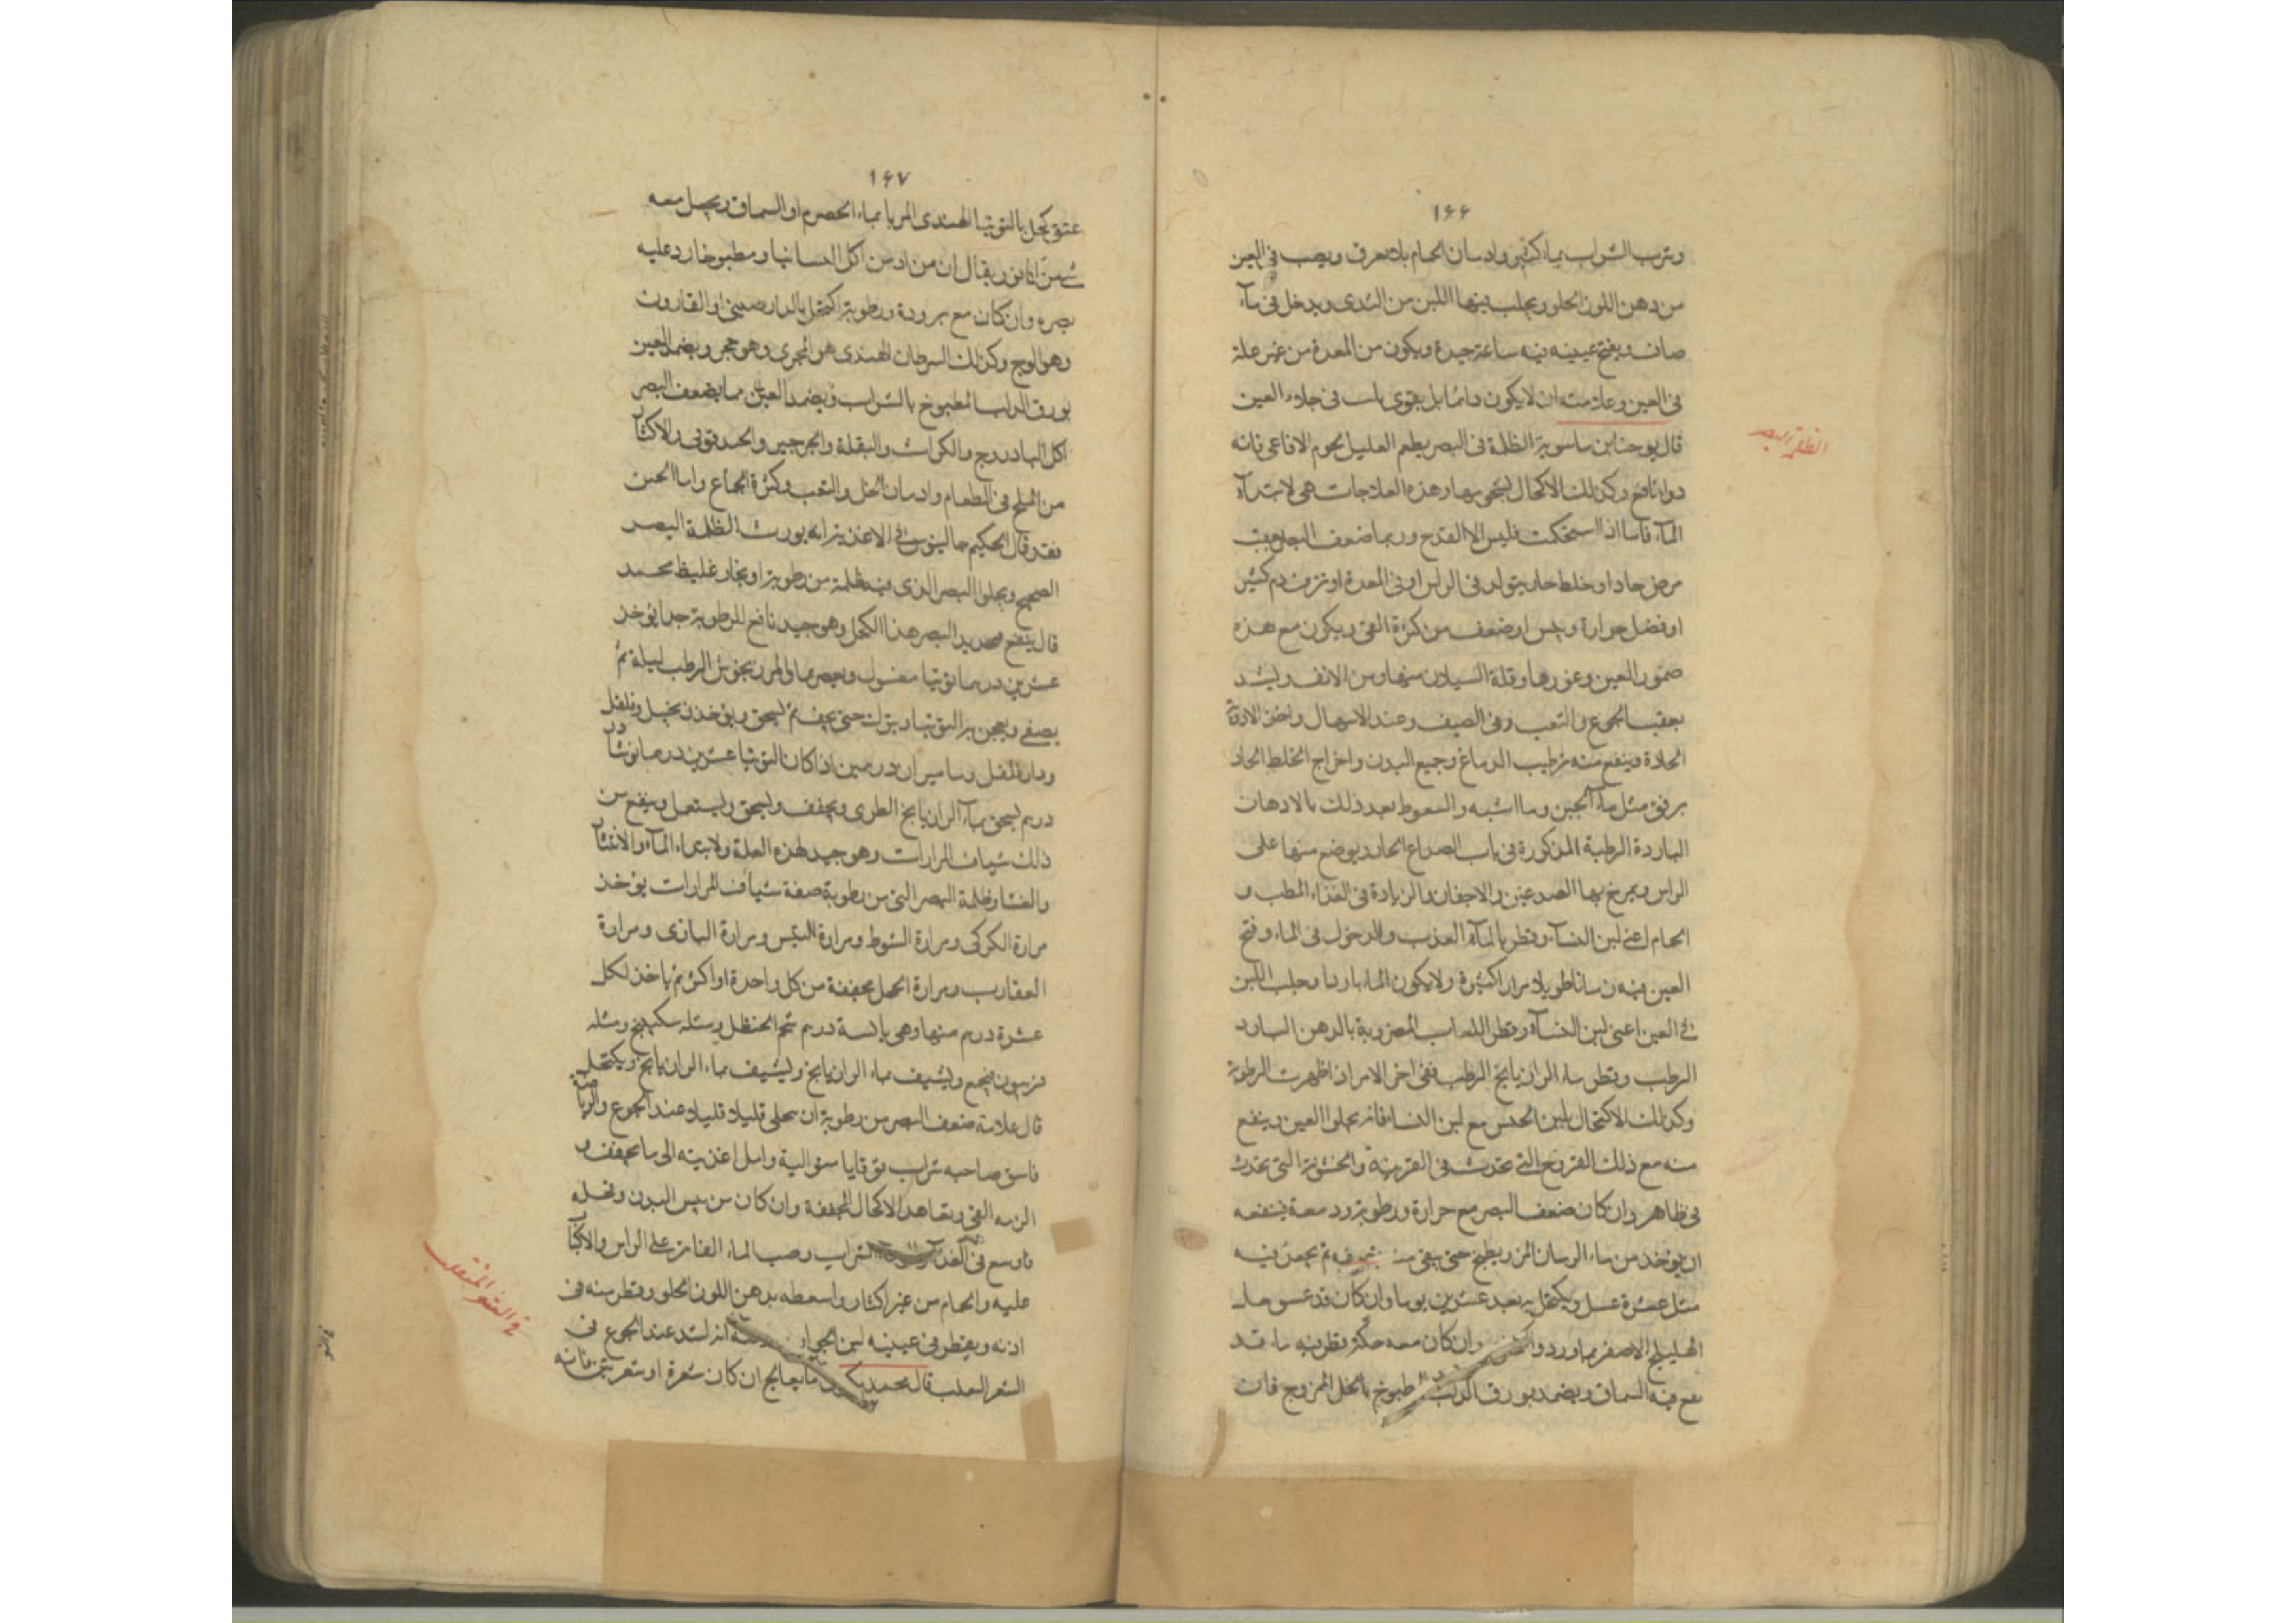 ١٦٦
وشرب الشراب بماء كثير وادمان الحمام بلا تعرق ويصب في العين
من دهن اللوز الحلو ويحلب فيها اللبن من الثدى ويدخل فى ماء
صاف ويفتح عينيه فيه ساعة جيدة ويكون من المعدة من غير علة
فى العين وعلامته ان لا يكون دائما بل يقوى
قال يوحنا بن ماسويه الظلمة فى البصر يطعم العليل لحوم الافاعى فانه
دواء نافع وكذلك الاكحال وهذه العلاجات هى لابتداء
الماء فاما اذا استحكمت فليس الا القدح وربما ضعف البصر
مرض حاد او خلط حار يتولد فى الراس او فى المعدة او نزف دم كثير
او فضل حرارة ويبس او ضعف من كثرة القى ويكون مع هذه
ضمور العين وغورها وقلة السيلان منها ومن الانف ويشتد
بعقب الجوع والتعب وفى الصيف وعند الاسهال واخذ الادوية
الحادة وينفع منه ترطيب الدماغ وجميع البدن واخراج الخلط الحاد
برفق مثل ماء الجبن وما اشبه والسعوط بعد ذلك بالادهان
الباردة الرطبة المذكورة فى باب الصداع الحار ويوضع منها على
الراس ويمرخ بها الصدغين والاجفان والزيادة فى الغذاء الرطب و
الحمام اعنى لبن النساء وقطر بالماء العذب والدخول فى الماء وفتح
العين فيه زمانا طويلا مرارا كثيرة ولا يكون الماء باردا وحلب اللبن
فى العين اعنى لبن النساء وقطر اللعاب المضروبة بالدهن البارد
الرطب وقطر ماء الرازيانج الرطب ففى اخر الامر ان ظهرت الرطوبة
وكذلك الاكتحال بلبن مع لبن النسا فانه يجلوا العين وينفع
منه مع ذلك القروح التى تحدث فى القرنية والخشونة التى تحدث
فى ظاهر وان كان ضعف البصر مع حرارة ورطوبة ودمعة ينفعه
ان يوخذ من ماء الرمان المز ويطبخ حتى يبقى نصفه ثم يجعل فيه
مثل عشرة عسل ويكتحل به بعد عشرين يوما وان كان قد
الهليلج الاصفر بماورد وان كان معه حكة قطر فيه ماء قد
نقع فيه السماق ويضمد بورق مطبوخ بالخل الممزوج فان
الظلمة البصر
١٦٧
عتق كحل بالتوتيا الهندى المربا بماء الحصرم او السماق ويجعل معه
شىء من الكافور يقال ان من ادمن اكل ومطبوخا رد عليه
بصره وان كان مع برودة ورطوبة اكتحل بالدارصينى او
وهو الوج وكذلك السرطان الهندى هو البحرى وهو حجر ويضمد العين
بورق المطبوخ بالشراب ويضمد العين مما يضعف البصر
اكل البادروج والكراث والبقلة والجرجير والحندقوقى والاكثار
من الملح فى الطعام وادمان الخل والتعب وكثرة الجماع واما الخس
فقد قال الحكيم جالينوس فى الاغذية انه يورث الظلمة البصر
الصحيح ويجلوا البصر الذى فيه ظلمة من رطوبة او بخار غليظ محمد
قال ينفع البصر هذا الكحل وهو جيد نافع للرطوبة جدا يؤخذ
عشرين درهما توتيا مغسول ويصير ماء المرزنجوش الرطب ليلة ثم
يصفى ويعجن به التوتيا ويترك حتى يجف ثم يسحق ويؤخذ زنجبيل وفلفل
ودار فلفل وماميران درهمين اذا كان التوتيا عشرين درهما نوشادر
درهم يسحق بماء الرازيانج الطرى ويجفف ويسحق ويستعمل وينفع من
ذلك شياف المرارات وهو جيد لهذه العلة ولابتداء الماء والانتشار
والغشا وظلمة البصر التى من رطوبة صفة شياف المرارات يؤخذ
مرارة الكركى ومرارة الشبوط ومرارة التيس ومرارة البازى ومرارة
العقارب ومرارة الحجل مجففة من كل واحدة او اكثر ثم ياخذ لكل
عشرة درهم منها وهى يابسة درهم شحم الحنظل ومثله سكبينج ومثله
فربيون يجمع ويشيف بماء الرازيانج ويكتحل
قال علامة ضعف البصر من رطوبة ان يجلى قليلا قليلا عند الجوع والرياضة
فاسق صاحبه شراب متوالية وامل اغذيته الى ما يجفف و
الزمه القى وتعاهد الاكحال المجففة وان كان من يبس البدن
فاوسع فى الغذاء الشراب وصب الماء الفاتر على الراس والاكباب
عليه والحمام من غير اكثار واسعطه بدهن اللوز الحلو وقطر منه فى
اذنه ويقطر فى عينيه لبن الجوارى انه يشتد عند الجوع فى
الشعر المنقلب قال محمد يعالج ان كان شعرة او شعرتين فانه
فى الشعر المنقلب